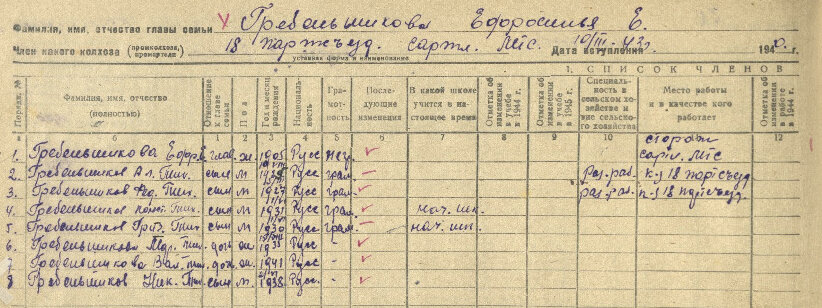 Фамилия, имя, отчество главы семьи Гребеньшикова Ефросинья Е.
Член какого колхоза (промколхоза, промартели) 18 партсъезд. сартл. МТС. Дата вступления 10/III-43г. 194 0. г.
уставная форма и наименование
1. СПИСОК ЧЛЕНОВ
Порядк. № Фамилия, имя, отчество (полностью) Отношение к главе семьи Пол Год и месяц рождения Национальность Грамотность Последующие изменения В какой школе учится в настоящее время Отметка об изменении в учебе в 1944 г. Отметка об изменении в учебе в 1945 г. Специальность в сельском хозяйстве и вне сельского хозяйства Место работы и в качестве кого работает Отметка об изменении в 1944 г.
а б 1 2 3 4 5 6 7 8 9 10 11 12
сторож
1. Гребеньшикова Ефр.Е глав. ж. 1905 Русс нег. сартл. МТС
2. Гребеньшиков Ал. Тих. сын м Русс грам. – Раз. раб. к-з 18 партсъезд
3. Гребеньшиков Тих. сын м 1927 Русс грам. раз. раб. к-з 18 партсъезд.
4. Гребеньшиков Конст. Тих. сын м 1931 Русс грам. нач. шк.
5. Гребеньшиков Григ. Тих. сын м 1930 Русс грам. – нач. шк.
6. Гребеньшикова Тих. дочь ж. Русс –
7 Гребеньшикова Вал. Тих. дочь ж. 1941 Русс –
8 Гребеньшиков Ник. Тих. сын м. 1938 Русс. –